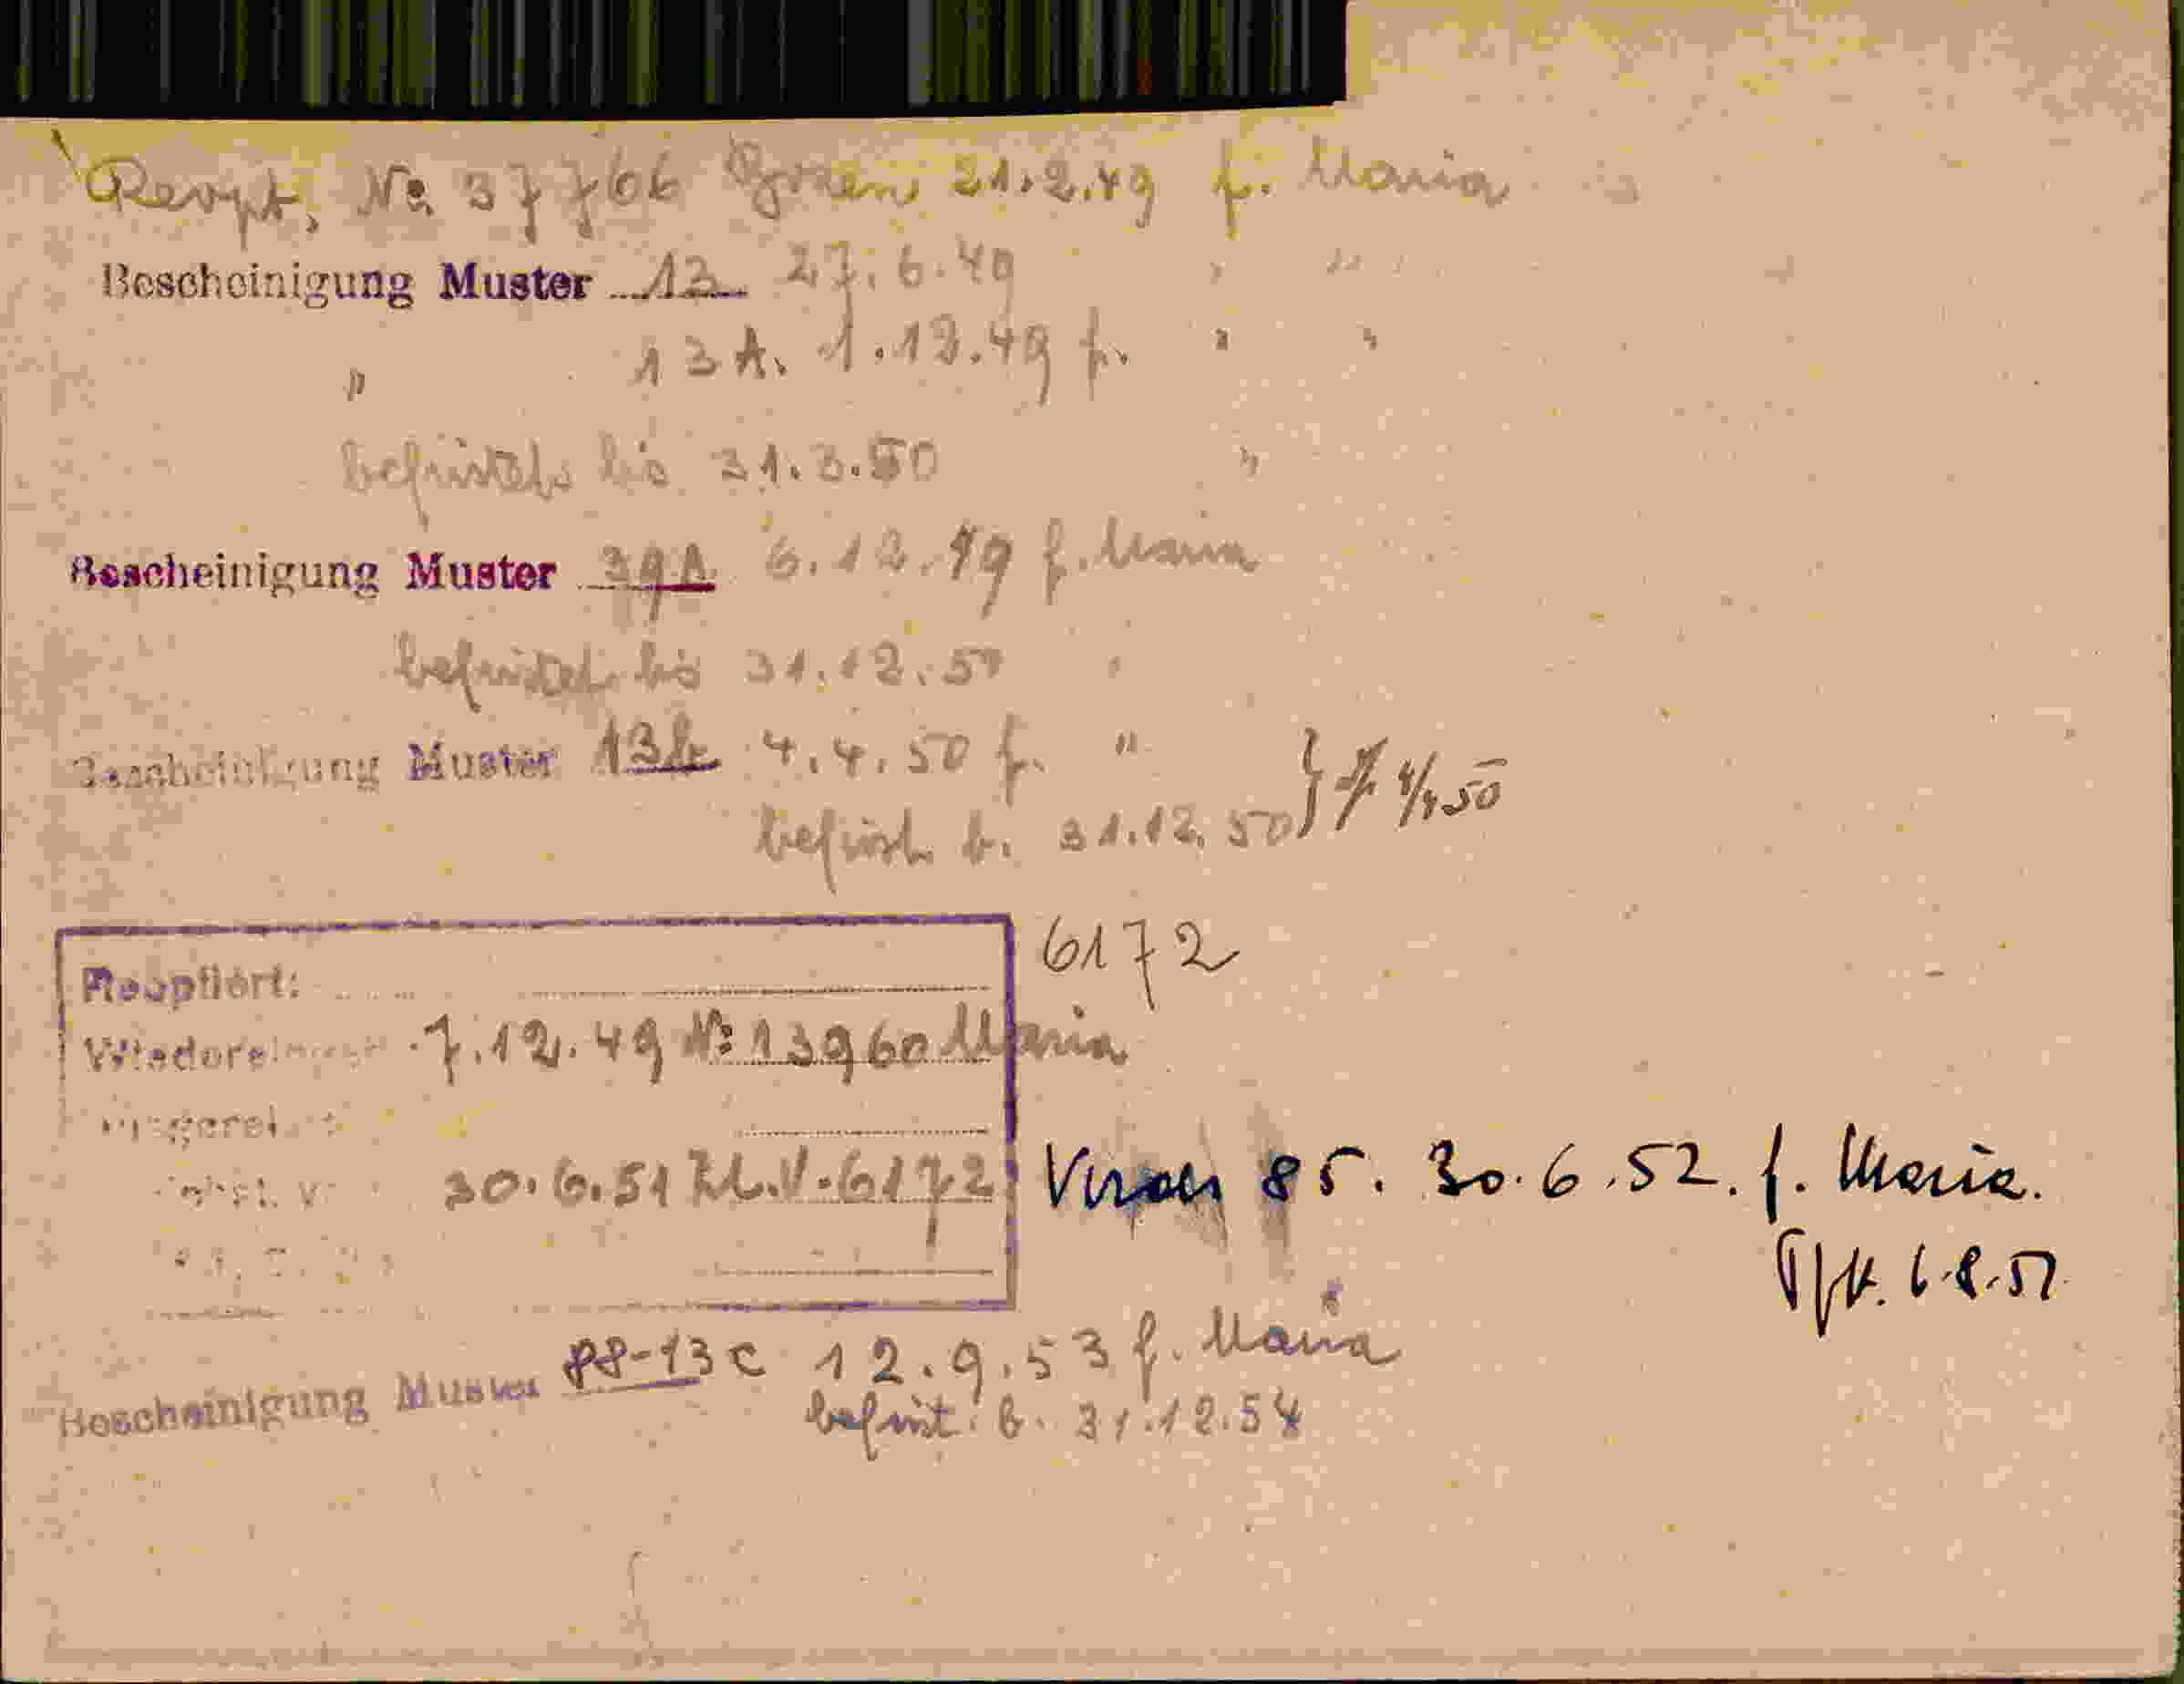 Reopt. No 37766 21.2.49 f. Maria
Bescheinigung Muster 13 27.6.49 " "
" 13 A. 1.12.49 f. " "
befristet bis 31.3.50 "
Bescheinigung Muster 39A 6.12.49 f. Maria
befristet bis 31.12.50 "
Bescheinigung Muster 13b 4.4.50 f. "
befrist. b. 31.12.50 } 4/4 50
6172
Reoptiert:
7.12.49 No 13960 Maria
30.6.51 Zl. V. 6172
85. 30.6.52. f. Maria.
Bescheinigung Muster 88-13c 12.9.53 f. Maria
befrist. b. 31.12.54